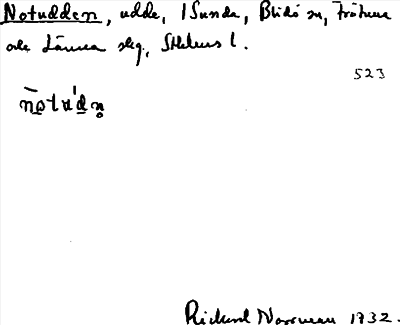 Notudden, udde, i Sunda, Blidö sn, Frötuna
och Länna skg, Sthlms l.
523
Rickard Norrman 1932.